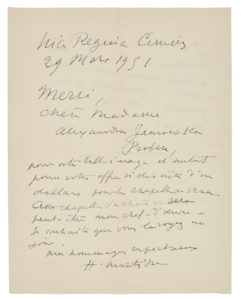 Nice Regina Cimiez
29 Mars 1951
Merci,
chère Madame
Alexandra
pour votre belle image et surtout
pour votre offre
dollars pour la chapelle de Vence.
Cette chapelle sera
peut être mon chef-d'œuvre -
Je souhaite que vous la voyez un
jour.
mes hommages respectueux
H. Matisse